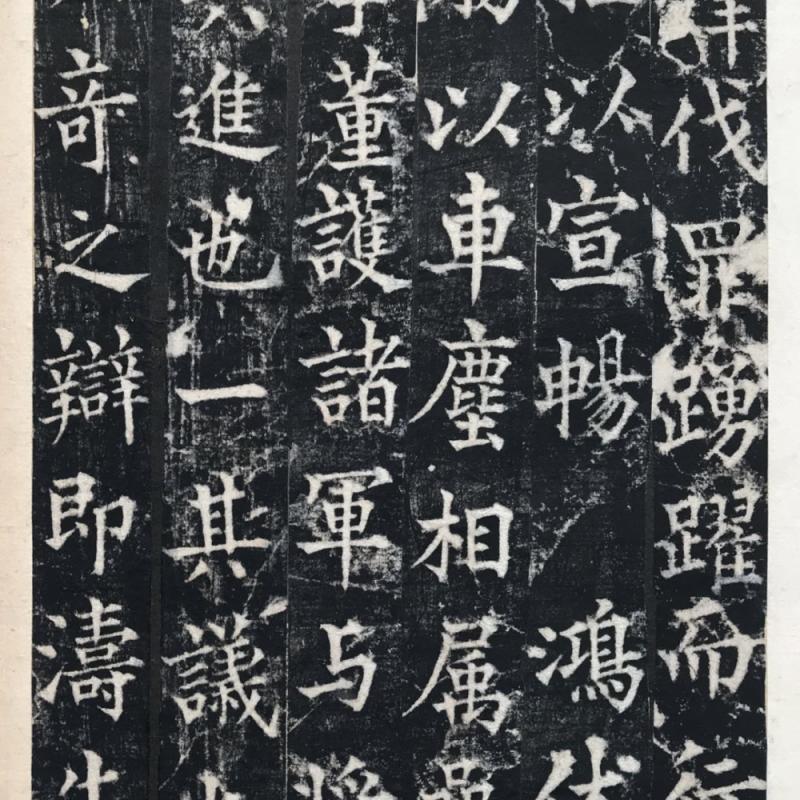 伐罪踴躍而行
以宣暢鴻
以車塵相属
董護諸軍与將
進也一其議
奇之辯即濤